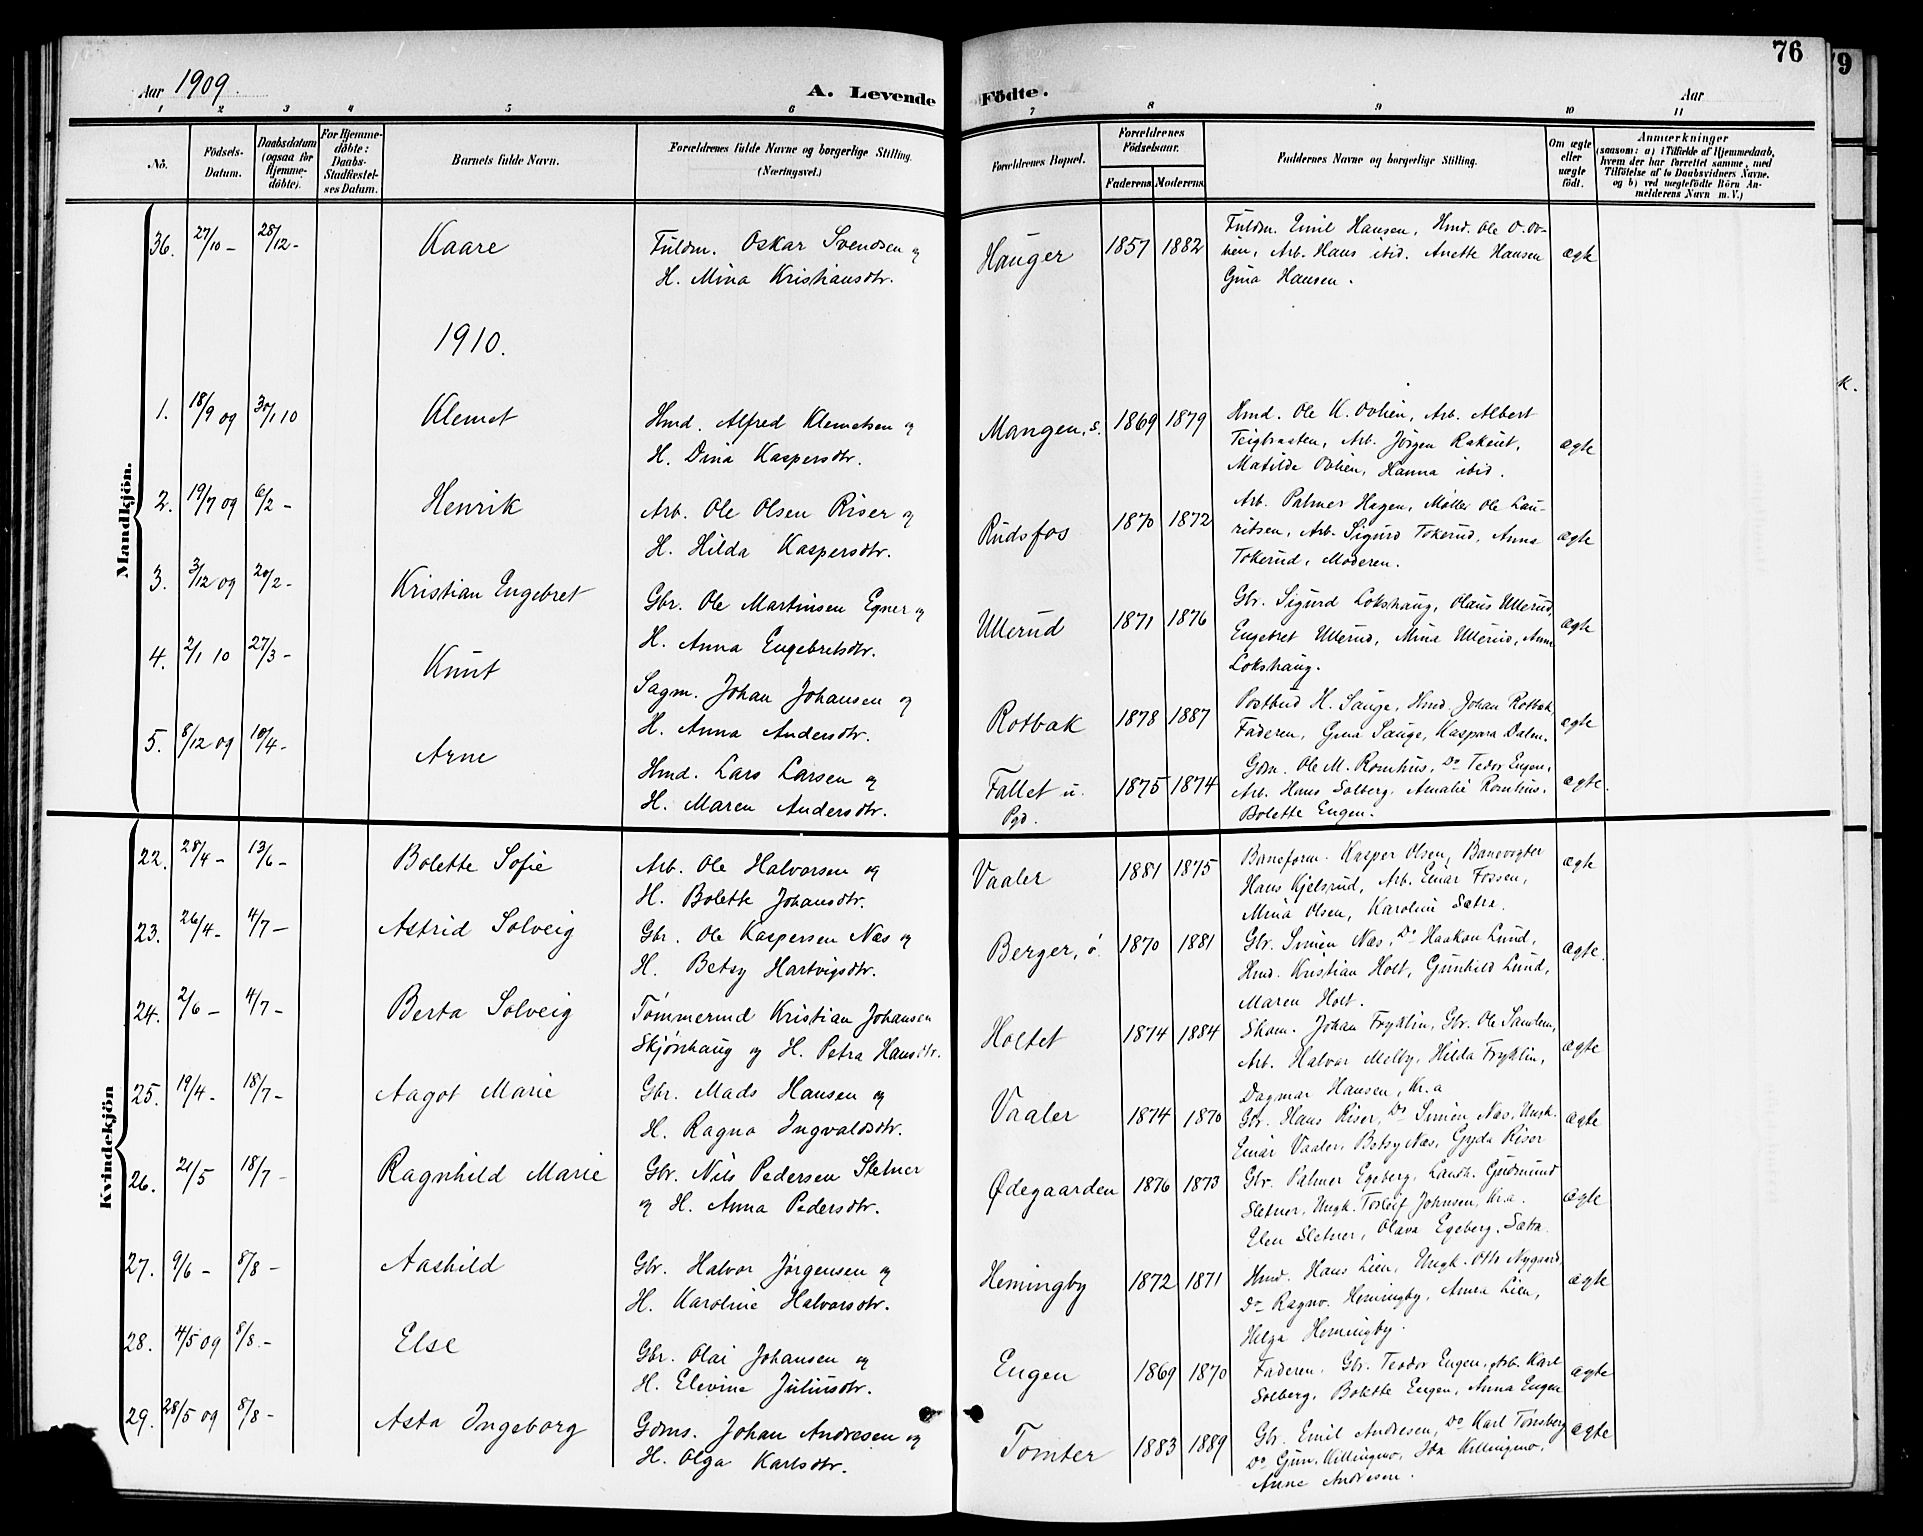 76
79
Aar 1909.
A. Levende Födte.
Aar
1 2 3 4 5 6 7 8 9 10 11
No.
Födsels-Datum.
Daabsdatum (ogsaa for Hjemme-döbte).
For Hjemme-döbte: Daabs-Stadfæstel-ses Datum.
Barnets fulde Navn.
Forældrenes fulde Navne og borgerlige Stilling. (Næringsvei.)
Forældrenes Bopæl.
Forældrenes Födselsaar.
Faderens. Moderens.
Faddernes Navne og borgerlige Stilling.
Om ægte eller uægte födt.
Anmærkninger
(saasom: a) i Tilfælde af Hjemmedaab, hvem der har forrettet samme, med Tilföielse af to Daabsvidners Navne. og b) ved uægtefödte Börn An-melderens Navn m. V.)
Mandkjön.
36. 27/10 - 28/12 - Kaare
Fuldm. Oskar Svendsen og
H. Mina Kristiansdtr.
Hauger 1857 1882
Fuldm. Emil Hansen, Hmd. Ole O. Ov-
hen, Arb. Hans ibid. Anette Hansen
Gina Hansen.
ægte
1910.
1. 18/9 09 30/1 10 Klemet
Hmd. Alfred Klemetsen og
H. Dina Kaspersdtr.
Mangen, s. 1869 1879
Hmd. Ole K. Ovhen, Arb. Albert
Teigbraaten, Arb. Jørgen Rakeut,
Matilde Ovhen, Hanna ibid.
ægte
2. 19/7 09 6/2 - Henrik
Arb. Ole Olsen Riser og
H. Hilda Kaspersdtr.
Rudsfos 1870 1872
Arb. Palmer Hagen, Møller Ole Lau-
ritsen, Arb. Sigurd Tokerud, Anna
Tokerud, Moderen.
ægte
3. 3/12 09 20/2 - Kristian Engebret
Gbr. Ole Martinsen Egner og
H. Anna Engebretsdtr.
Ullerud 1871 1876
Gbr. Sigurd Lokshaug, Olaus Ullerud,
Engebret Ullerud, Mina Ullerud, Anna
Lokshaug.
ægte
4. 2/1 10 27/3 - Knut
Sagm. Johan Johansen og
H. Anna Andersdtr.
Rotbak 1878 1887
Postbud H. Sauge, Hmd. Johan Rotbak,
Faderen, Gina Sauge, Kaspara Dalen.
ægte
5. 8/12 09 10/4 - Arne
Hmd. Lars Larsen og
H. Maren Andersdtr.
Fallet u.
Pgd.
1875 1874
Gdm. Ole M. Romhus, Do Tedor Engen,
Arb. Hans Solberg. Amalie Romhus.
Bolette Engen.
ægte.
Kvindekjön
22. 28/4 - 13/6 - Bolette Sofie
Arb. Ole Halvorsen og
H. Bolette Johansdtr.
Vaaler 1881 1875
Baneform. Kasper Olsen, Banevogter
Hans Kjelsrud, Arb. Einar Fossen,
Mina Olsen, Karoline Sætra.
ægte
23. 26/4 - 4/7 - Astrid Solveig
Gbr. Ole Kaspersen Næs og
H. Betsy Hartvigsdtr.
Berger, ö. 1870 1881
Gbr. Simen Næs, Do Haakon Lund,
Hmd. Kristian Holt, Gunhild Lund,
Maren Holt.
ægte.
24. 2/6 - 4/7 - Berta Solveig
Tømmermd Kristian Johansen
Skjønhaug og H. Petra Hansdtr.
Holtet 1874 1884
Skom. Johan Fryklin, Gbr. Ole Sandem,
Arb. Halvor Melby, Hilda Fryklin,
Dagmar Hansen, Kr.a
ægte
25. 19/4 - 18/7 - Aagot Marie
Gbr. Mads Hansen og
H. Ragna Ingvaldsdtr.
Vaaler 1874 1870
Gbr. Hans Riser, Do Simen Næs, Ungk.
Einar Vaaler, Betsy Næs, Gyda Riser
ægte
26. 21/5 18/7 - Ragnhild Marie
Gbr. Nils Pedersen Sletner
og H. Anna Pedersdtr.
Ødegaarden 1876 1873
Gbr. Palmer Egeberg, Landh. Gudmund
Sletner, Ungk. Torleif Johnsen, Kr.a.
Elen Sletner, Olava Egeberg. Sætra
ægte
27. 9/6 - 8/8 - Aashild
Gbr. Halvor Jørgensen og
H. Karoline Halvorsdtr.
Hemingby 1872 1871
Hmd. Hans Lien, Ungk. Otto Nygaard,
Do Ragnv. Hemingby, Anna Lien,
Helga Hemingby.
ægte
28. 4/5 09 8/8 - Else
Gbr. Olai Johansen og
H. Elevine Juliusdtr.
Engen 1869 1870
Faderen, Gbr. Teodor Engen, Arb. Karl
Solberg, Bolette Engen, Anna Engen
ægte
29. 28/5 09 8/8 - Asta Ingeborg
Gdms. Johan Andresen og
H. Olga Karlsdtr.
Tomter 1883 1889
Gbr. Emil Andresen, Do Karl Tønsberg
Do Gun. Killingmo, Ida Killingmo,
Anne Andresen.
ægte
K.